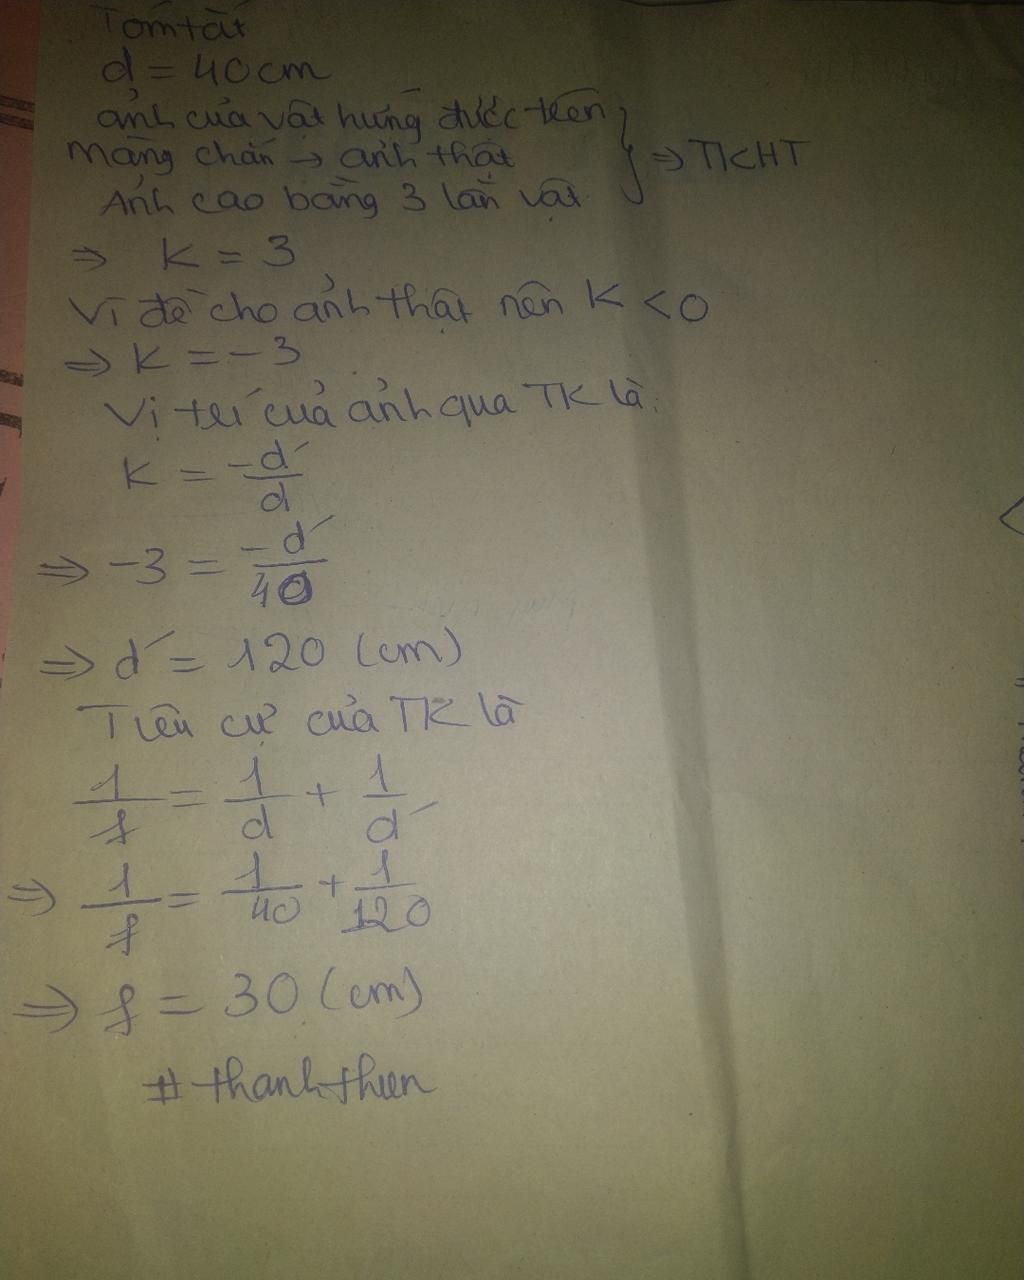 Tóm tắt
d = 40cm
ảnh của vật hứng được trên
màng chắn → ảnh thật } ⇒ TKHT
Ảnh cao bằng 3 lần vật
⇒ K = 3
Vì đề cho ảnh thật nên K < 0
⇒ K = -3
Vị trí của ảnh qua TK là:
K = -d′/d
⇒ -3 = -d′/40
⇒ d′ = 120 (cm)
Tiêu cự của TK là
1/f = 1/d + 1/d′
⇒ 1/f = 1/40 + 1/120
⇒ f = 30 (cm)